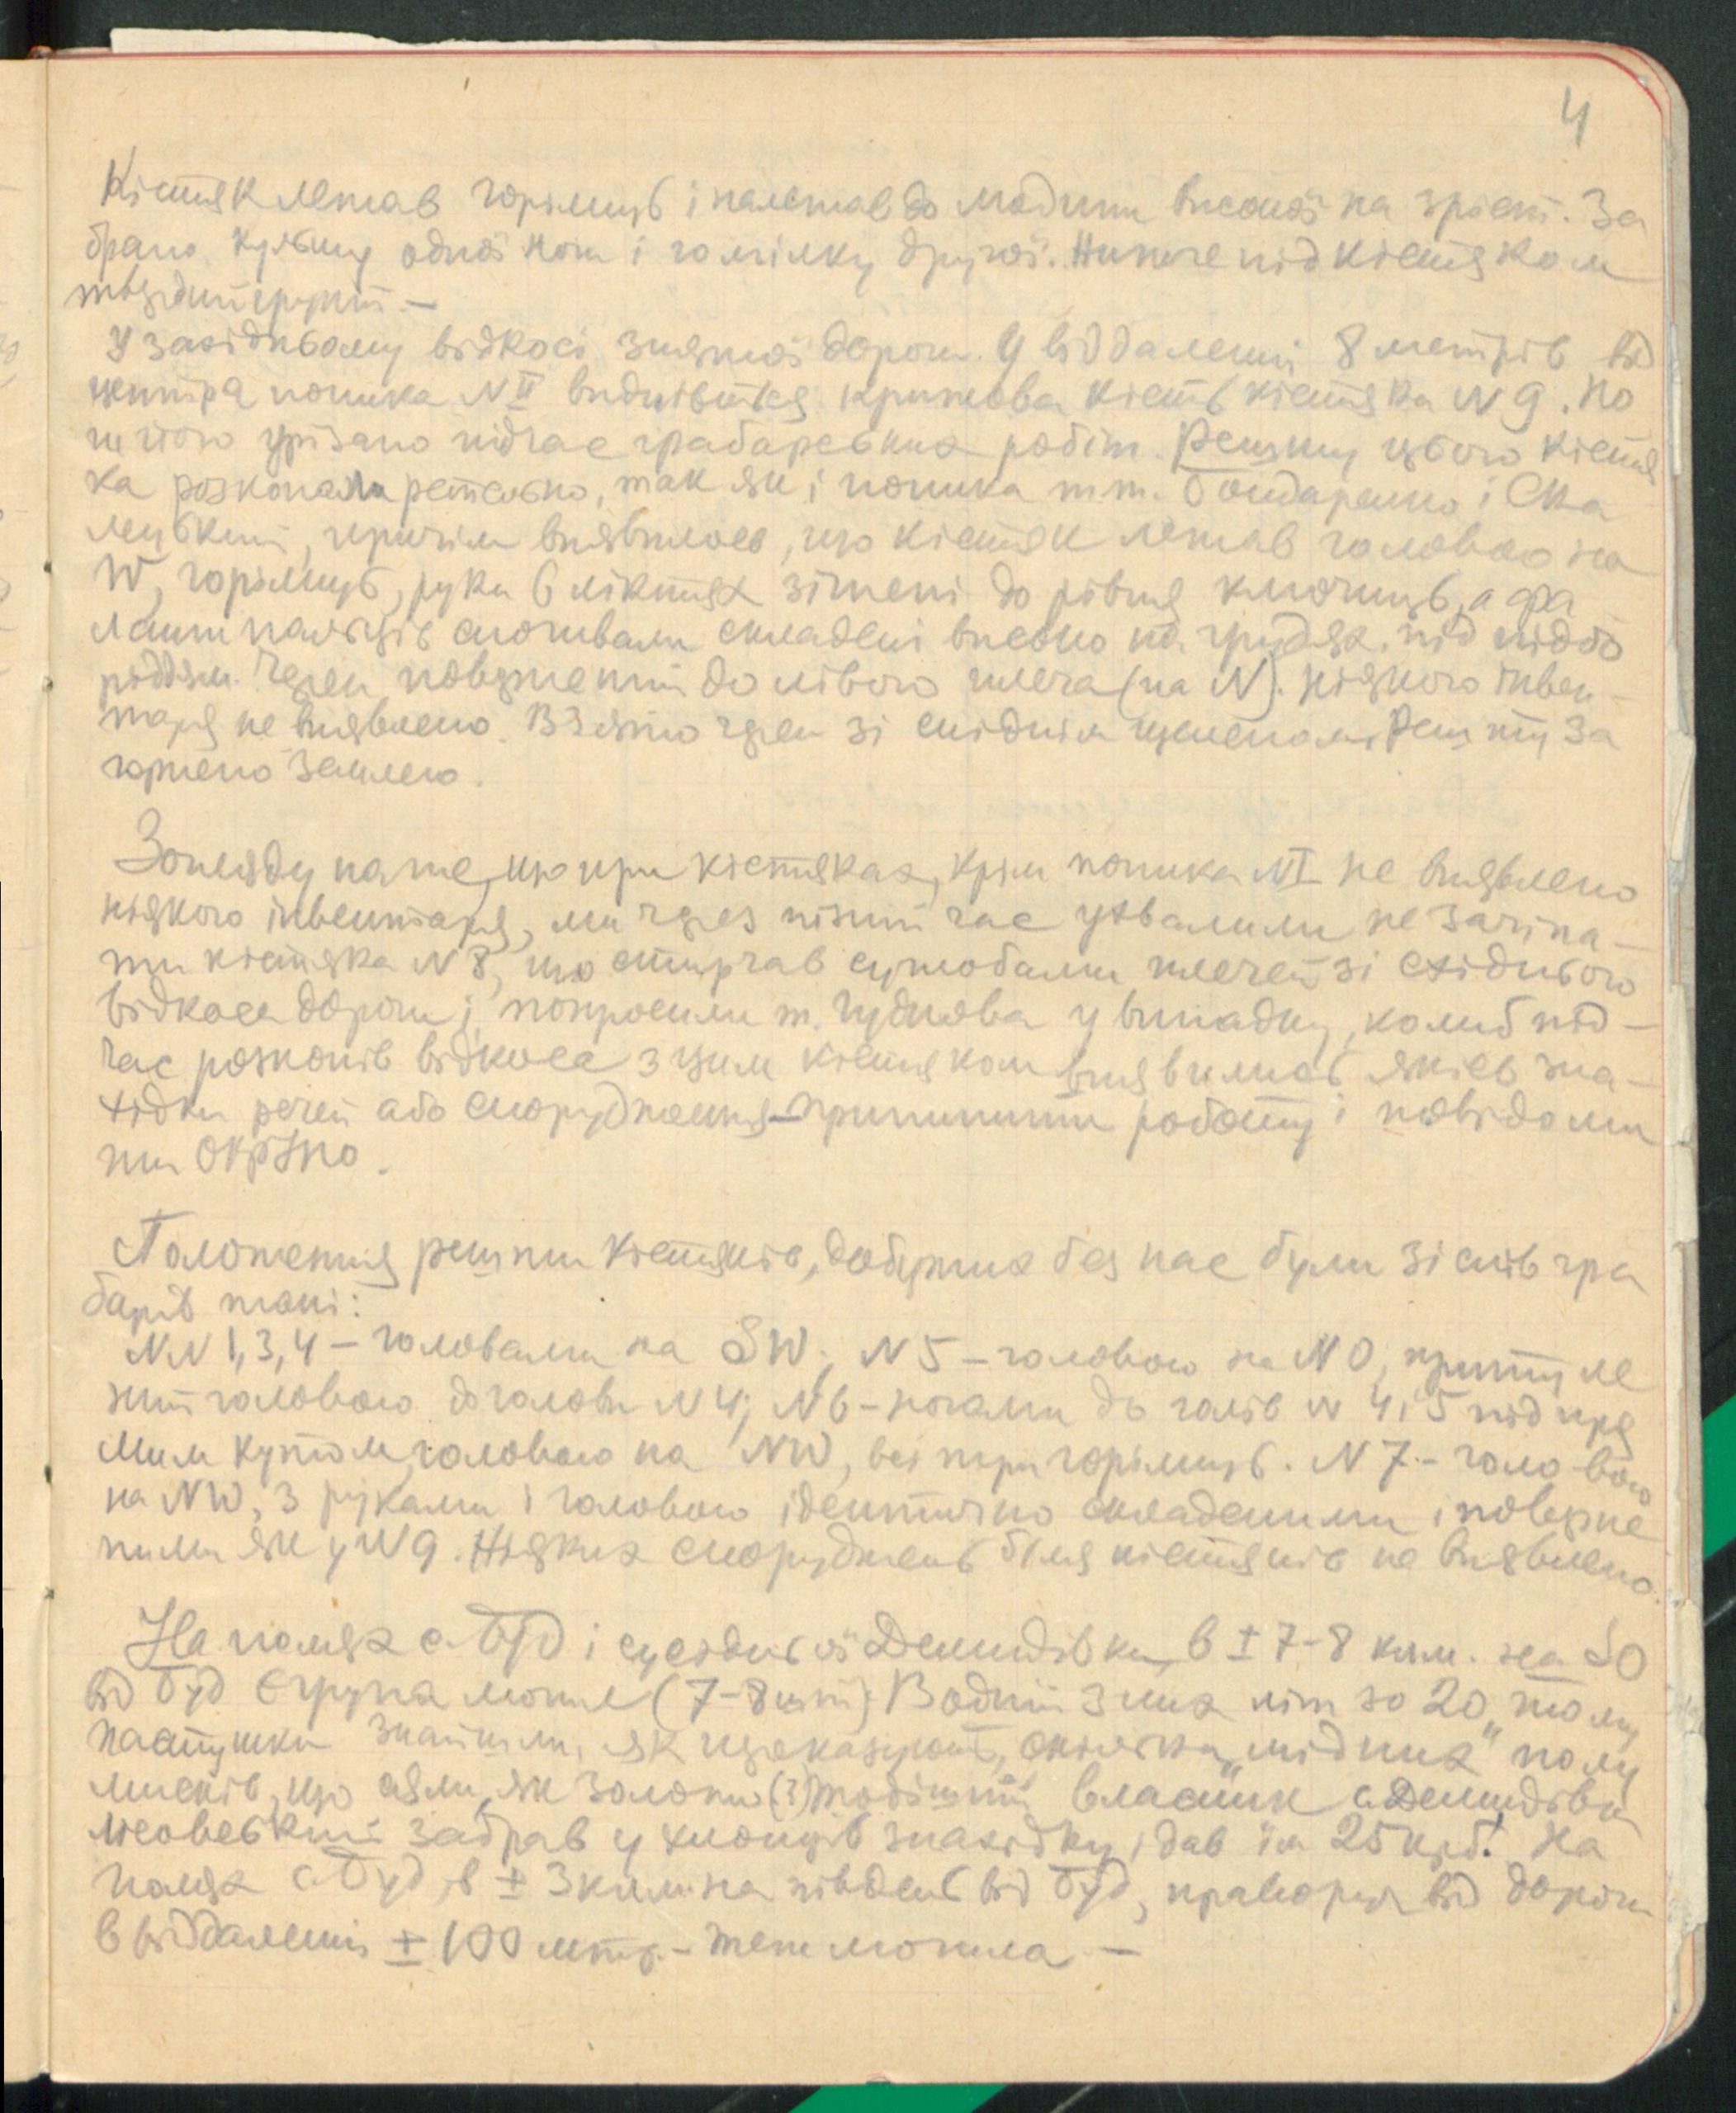 4
Кістяк лежав горілиць і належав до людини високої на зріст. За
брано кульшу одної ноги і гомілку другої. Нижче під кістяком
твердий ґрунт. —
У західньому відкосі знятої дороги. У віддаленні 8 метрів від
центра попика N II виднівться крижова кість кістяка N 9. Но
ги його зрізано підчас грабарських робіт. Решту цього кістя
ка розкопали ретельно, так як і попика т.т. Бондаренко і Ска
лецький, причім виявилось, що кістяк лежав головою на
W, горілиць, руки в ліктях зігнені до рівня ключиць, а фа
ланги пальців спочивали складені високо на грудях, під підбо
ріддям. Череп повернений до лівого плеча (на N). Ніякого інвен-
таря не виявлено. Взято череп зі спіднім щелепом. Решту за
горнено землею.
Зогляду на те, що при кістяках, крім попика N I не виявлено
ніякого інвентаря, ми через пізній час ухвалили не зачіпа-
ти кістяка N 8, що стирчав суглобами плечей зі східнього
відкоса дороги і попросили т. Чуднова у випадку, колиб під-
час розкопів відкоса з цим кістяком виявились якісь зна-
хідки речей або спорудження — припинити роботу і повідоми
ти ОкрІно.
Положення решти кістяків, добутих без нас були зі слів гра
барів такі:
NN 1, 3, 4 — головами на SW; N 5 — головою на NO, притуле
ний головою до голови N 4; N 6 — ногами до голів N 4 і 5 під пря
мим кутом, головою на NW, всі три горілиць. N 7. — головою
на NW, з руками і головою ідентично складеними і поверне
ними як у N 9. Ніяких споруджень біля кістяків не виявлено.
На полях с. Буд і сусідньої Демидівки, в ± 7-8 клм. на SO
від Буд є група могил (7-8 шт). В одній з них літ за 20 тому
пастушки знайшли, як проказують, скілька „мідних" полу
мисків, що сяяли, як золоті (?) тодішній власник с. Демидівки
забрав у хлопців знахідку і дав їм 25 крб! На
полях с. Буд, в ± 3 клм. на південь від Буд, праворуч від дороги
в віддаленні ± 100 мтр. — теж могила —